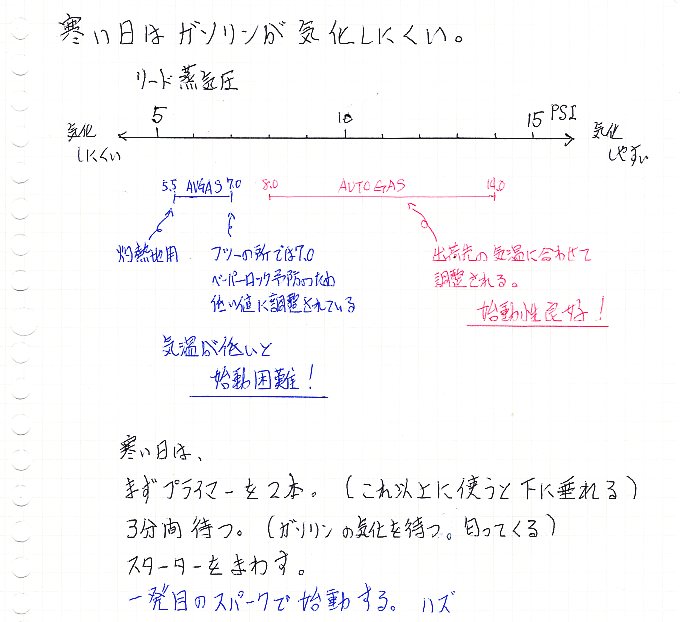 寒い日はガソリンが気化しにくい。
リード蒸気圧
5 10 15 PSI
気化
しにくい
気化
しやすい
5.5 AVGAS 7.0
8.0 AUTOGAS 14.0
灼熱地用
フツーの所では7.0
ベーパーロック予防のため
低い値に調整されている
出荷先の気温に合わせて
調整される。
始動性良好!
気温が低いと
始動困難!
寒い日は、
まずプライマーを2本。(これ以上に使うと下に垂れる)
3分間待つ。(ガソリンの気化を待つ。匂ってくる)
スターターをまわす。
一発目のスパークで始動する。ハズ